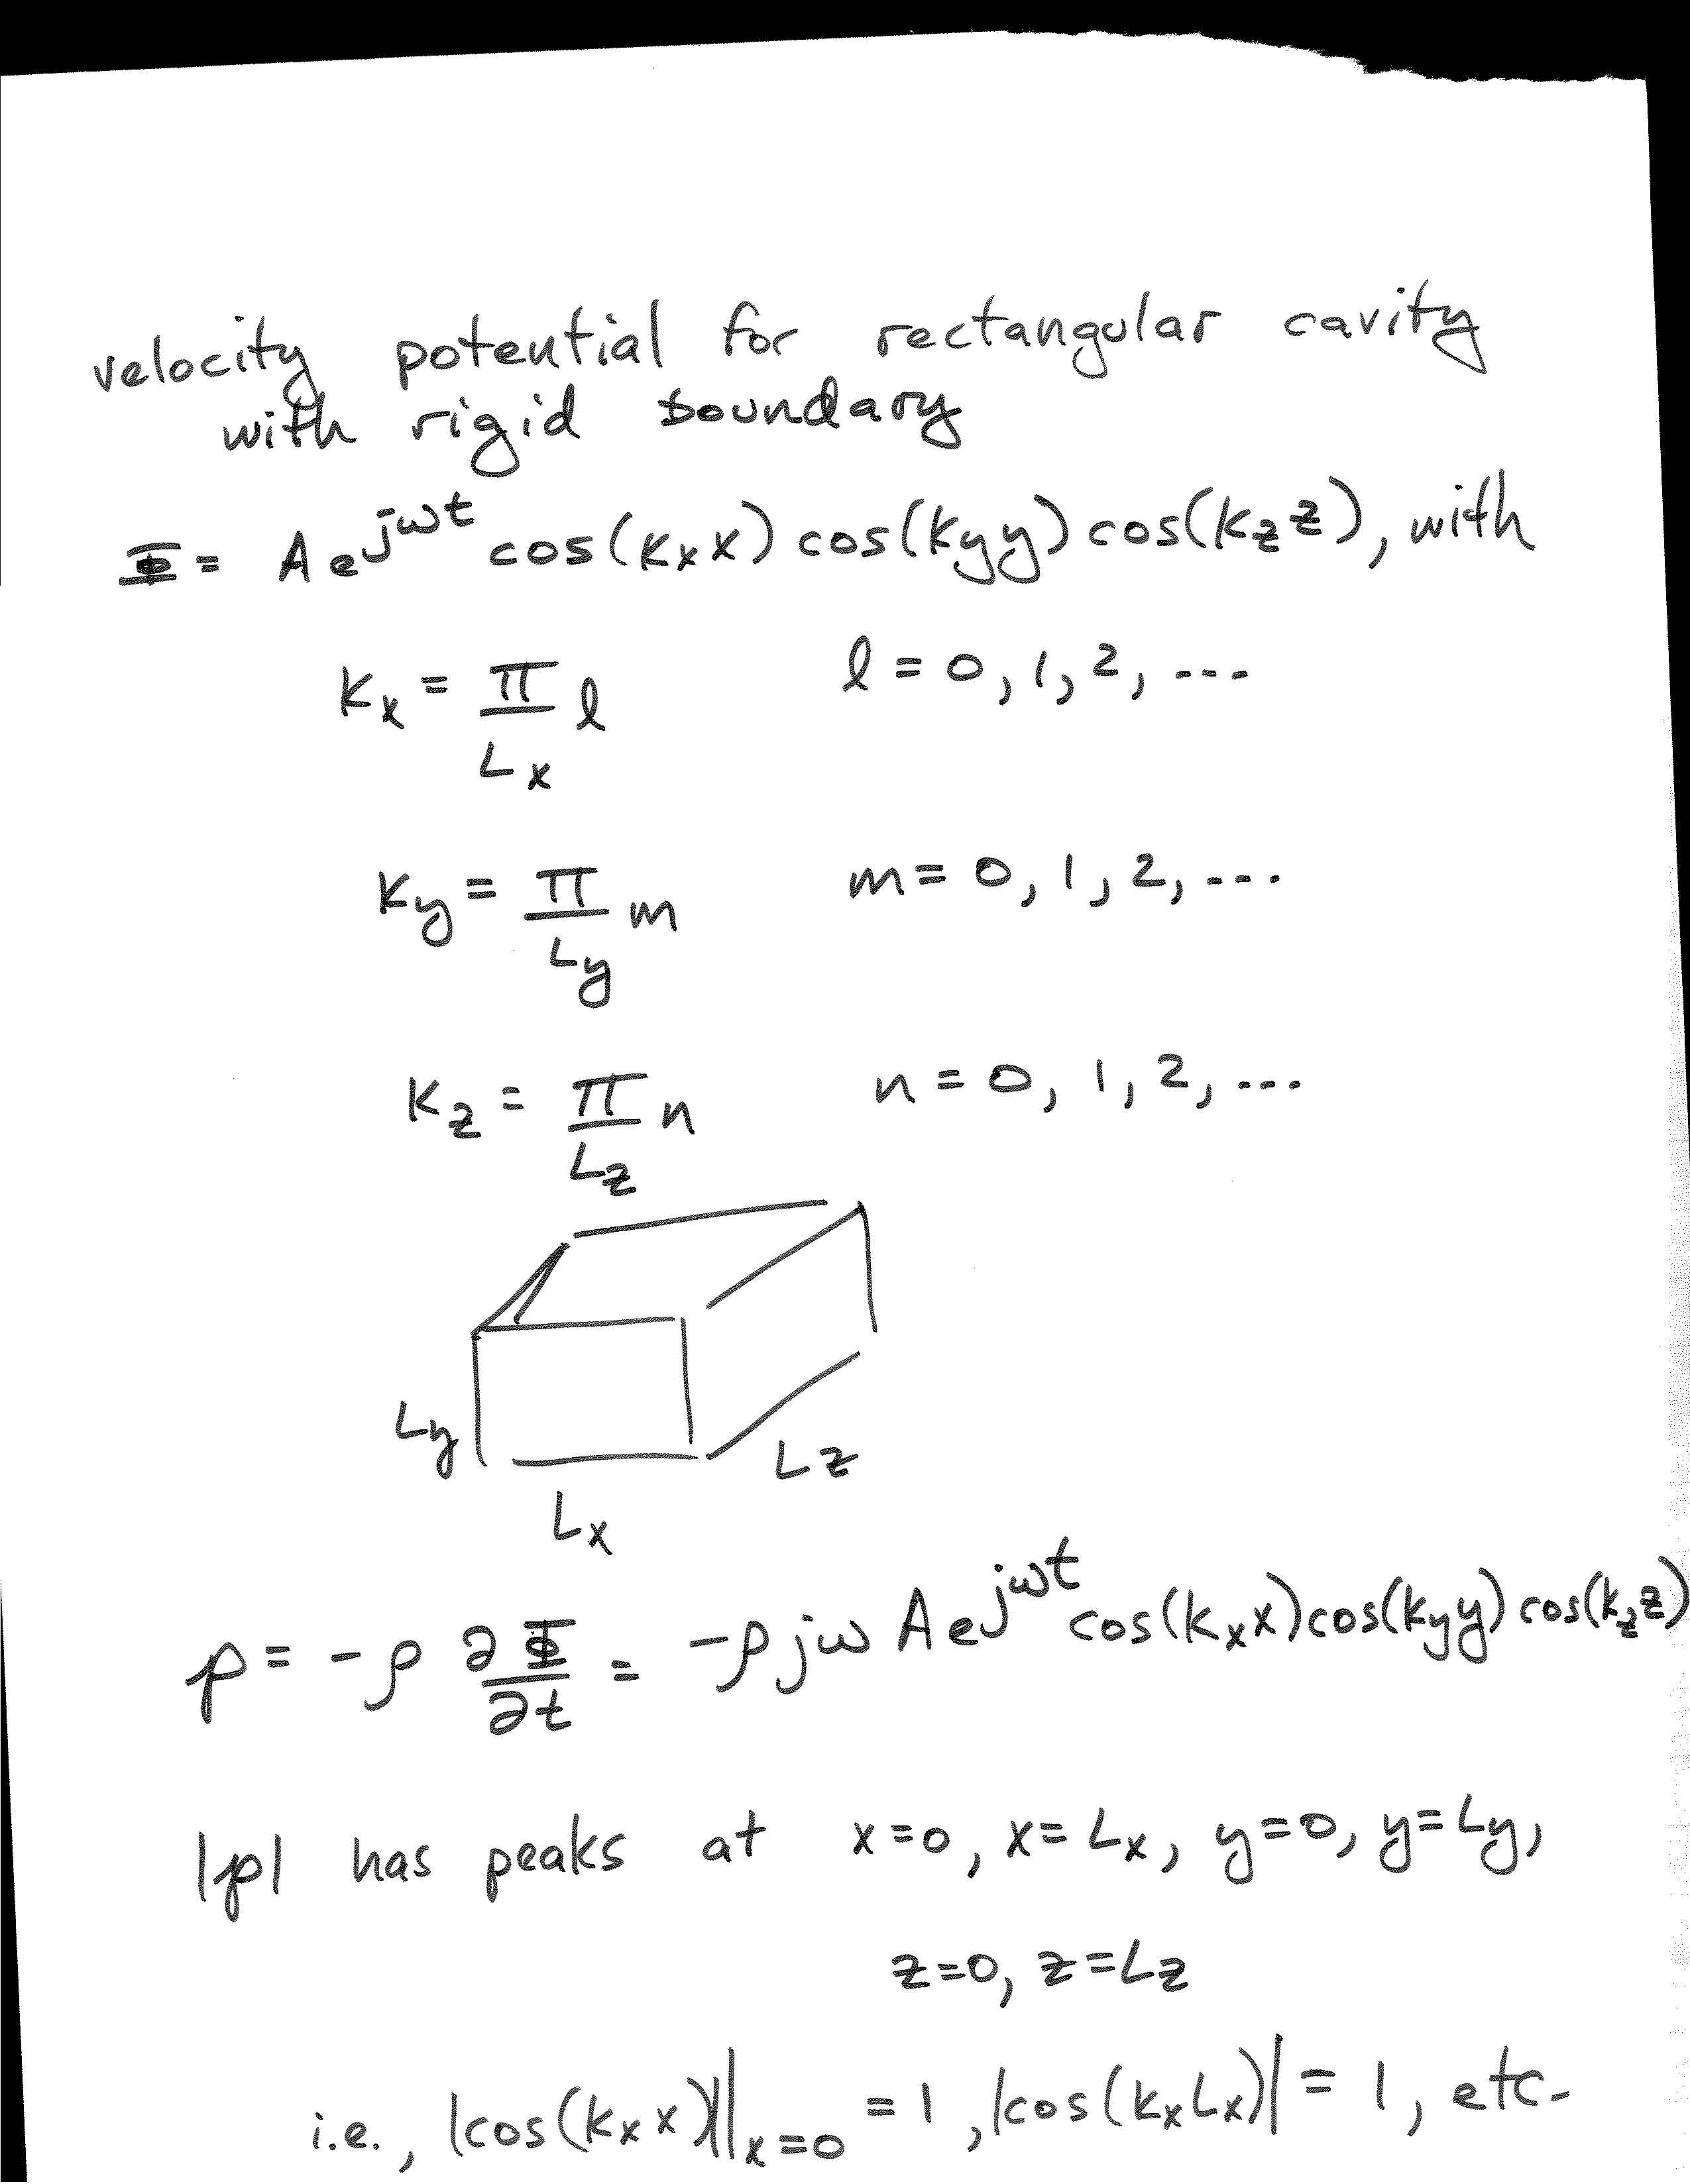 velocity potential for rectangular cavity
with rigid boundary
Φ = A e^{jωt} cos(k_x x) cos(k_y y) cos(k_z z), with
k_x = π/L_x l    l = 0, 1, 2, ...
k_y = π/L_y m    m = 0, 1, 2, ...
k_z = π/L_z n    n = 0, 1, 2, ...
L_y
L_z
L_x
p = -ρ ∂Φ/∂t = -ρjω A e^{jωt} cos(k_x x) cos(k_y y) cos(k_z z)
|p| has peaks at x=0, x=L_x, y=0, y=L_y,
z=0, z=L_z
i.e., |cos(k_x x)||_{x=0} = 1, |cos(k_x L_x)| = 1, etc.